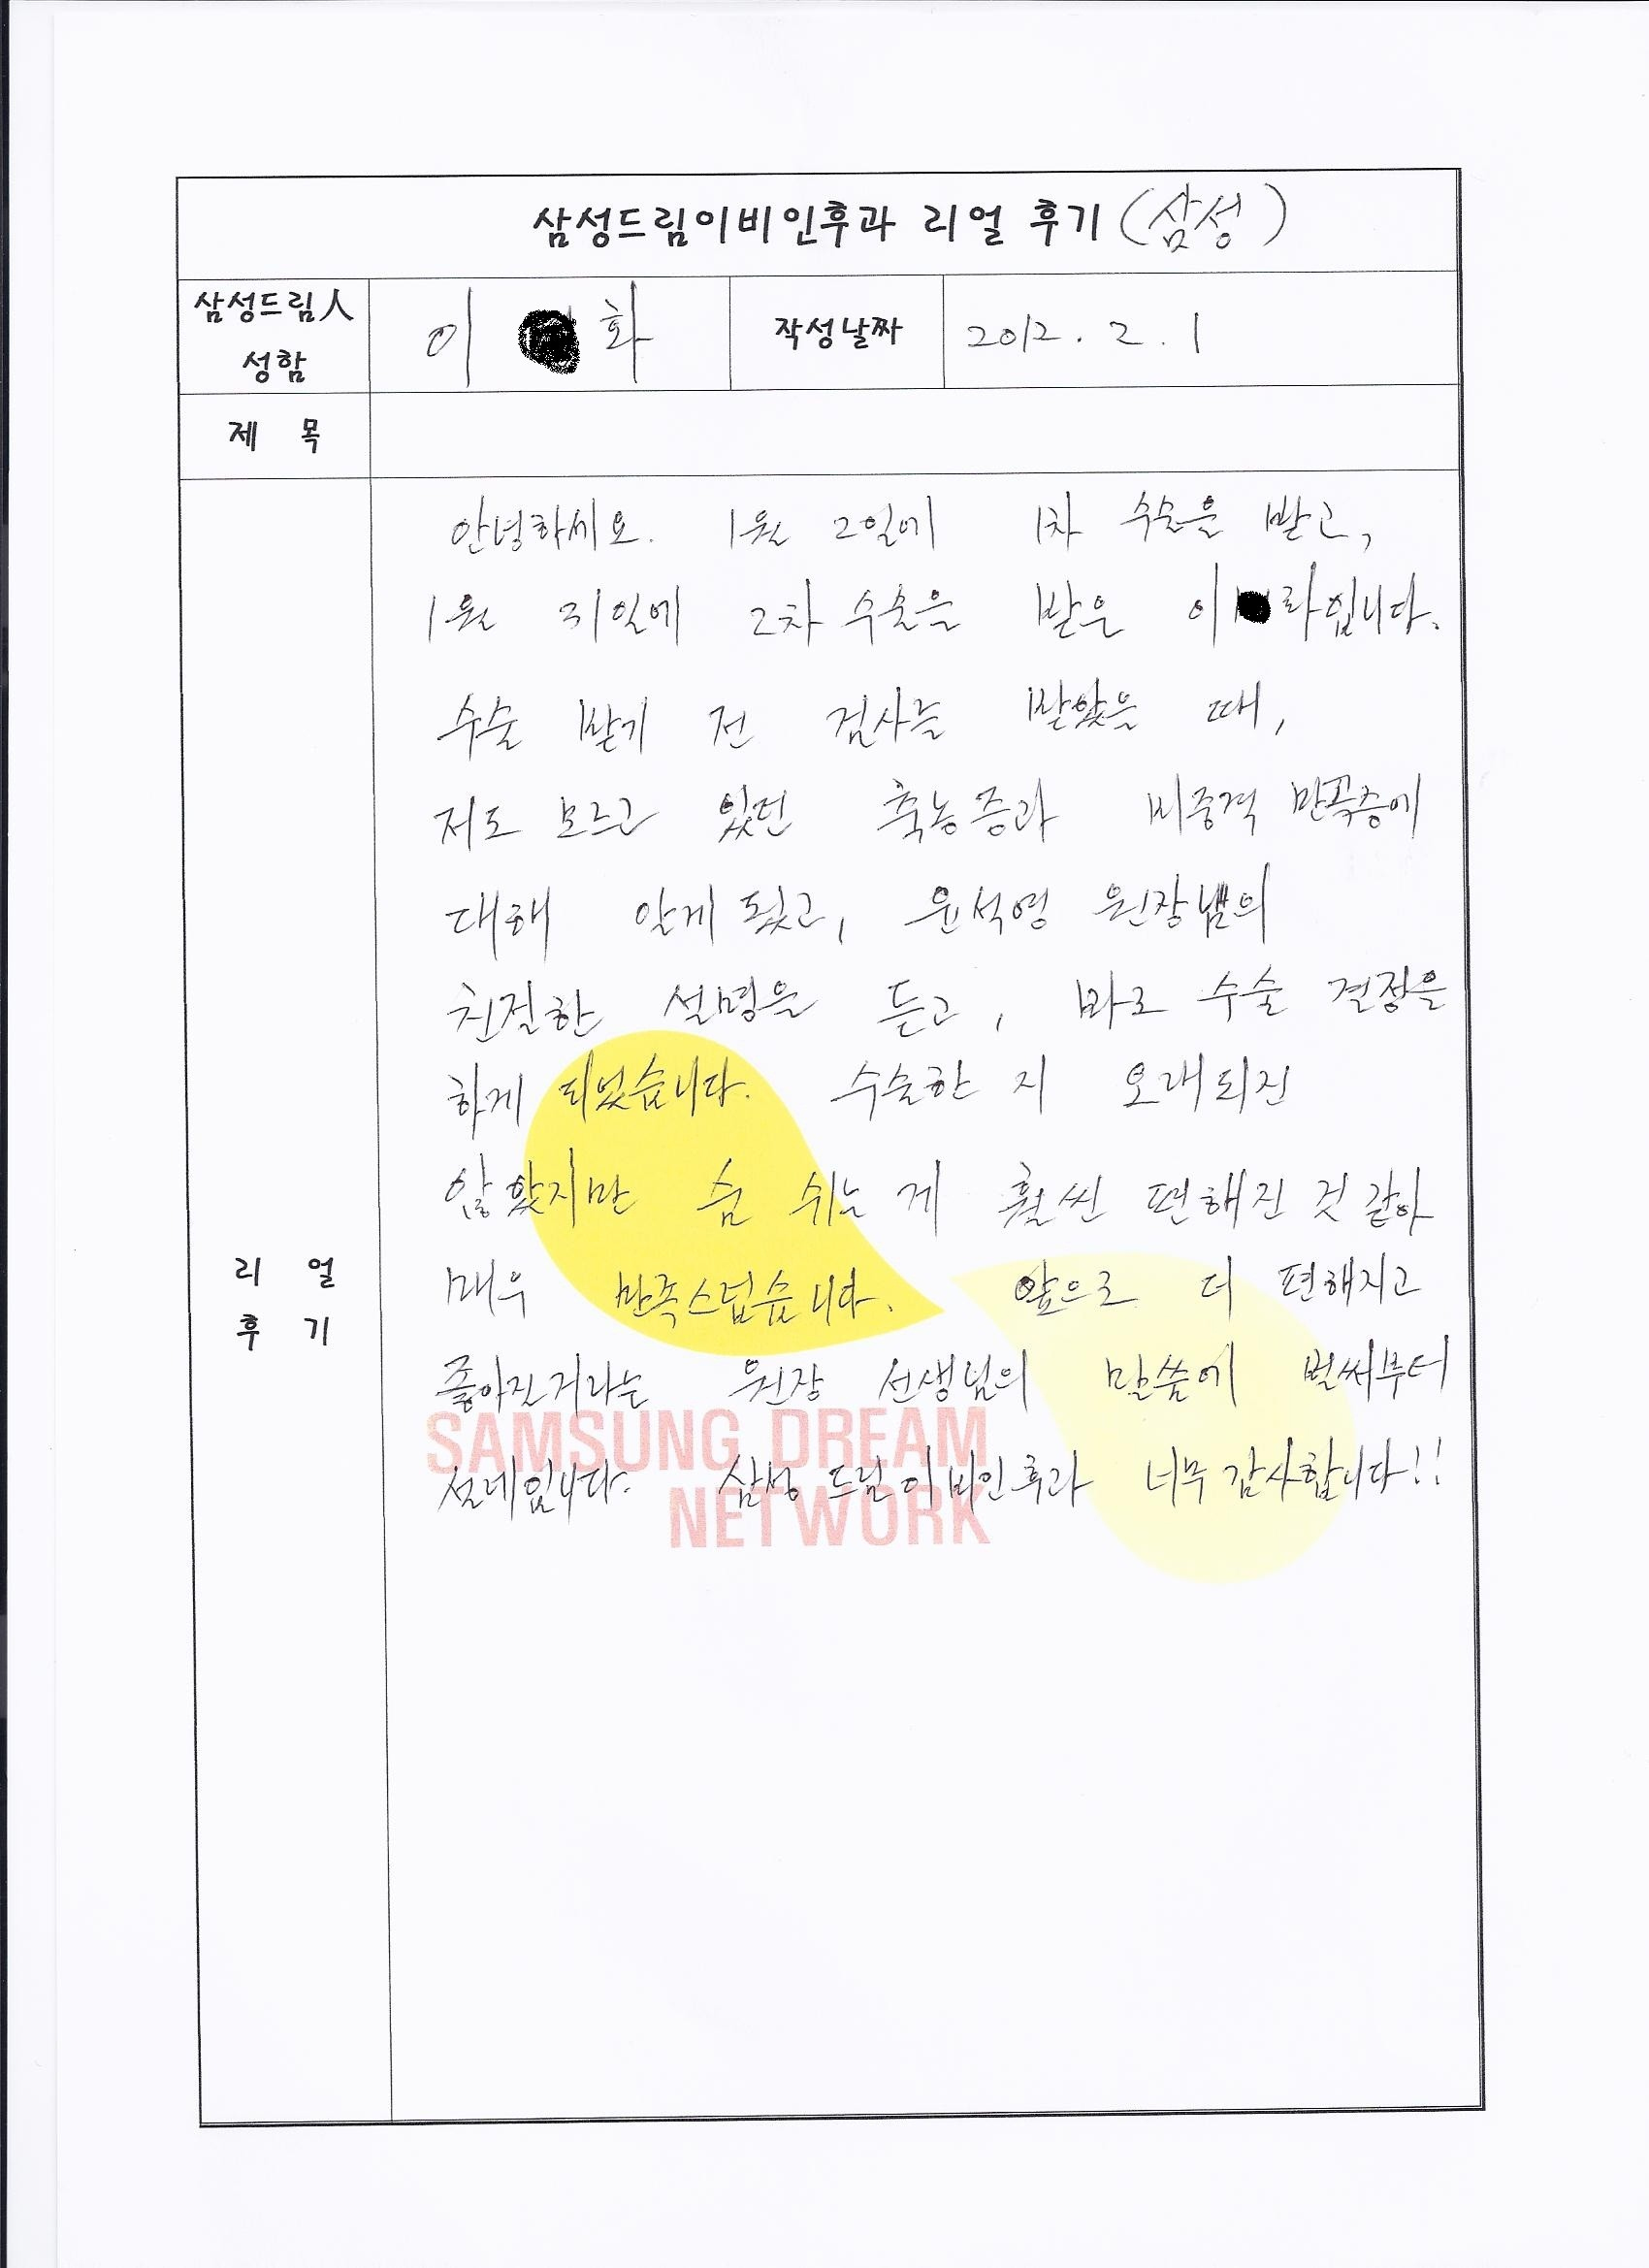 삼성드림이비인후과 리얼 후기 (삼성)
삼성드림人
성함
이 화
작성날짜
2012. 2. 1
제 목
리 얼
후 기
안녕하세요. 1월 2일에 1차 수술을 받고,
1월 31일에 2차 수술을 받은 이 화입니다.
수술 받기 전 검사를 받았을 때,
저도 모르고 있던 축농증과 비중격 만곡증에
대해 알게 됬고, 윤석영 원장님의
친절한 설명을 듣고, 바로 수술 결정을
하게 되었습니다. 수술한 지 오래되진
않았지만 숨 쉬는 게 훨씬 편해진 것 같아
매우 만족스럽습니다. 앞으로 더 편해지고
좋아질거라는 원장 선생님의 말씀에 벌써부터
설레입니다. 삼성 드림 이비인후과 너무 감사합니다!!
SAMSUNG DREAM
NETWORK